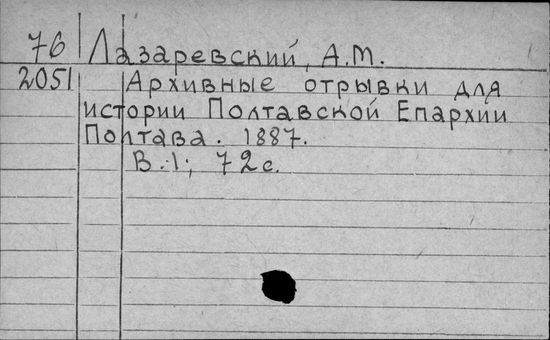 76 Лазаревский, А.М.
2051 Архивные отрывки для
истории Полтавской Епархии
Полтава. 1887.
В.1; 72с.